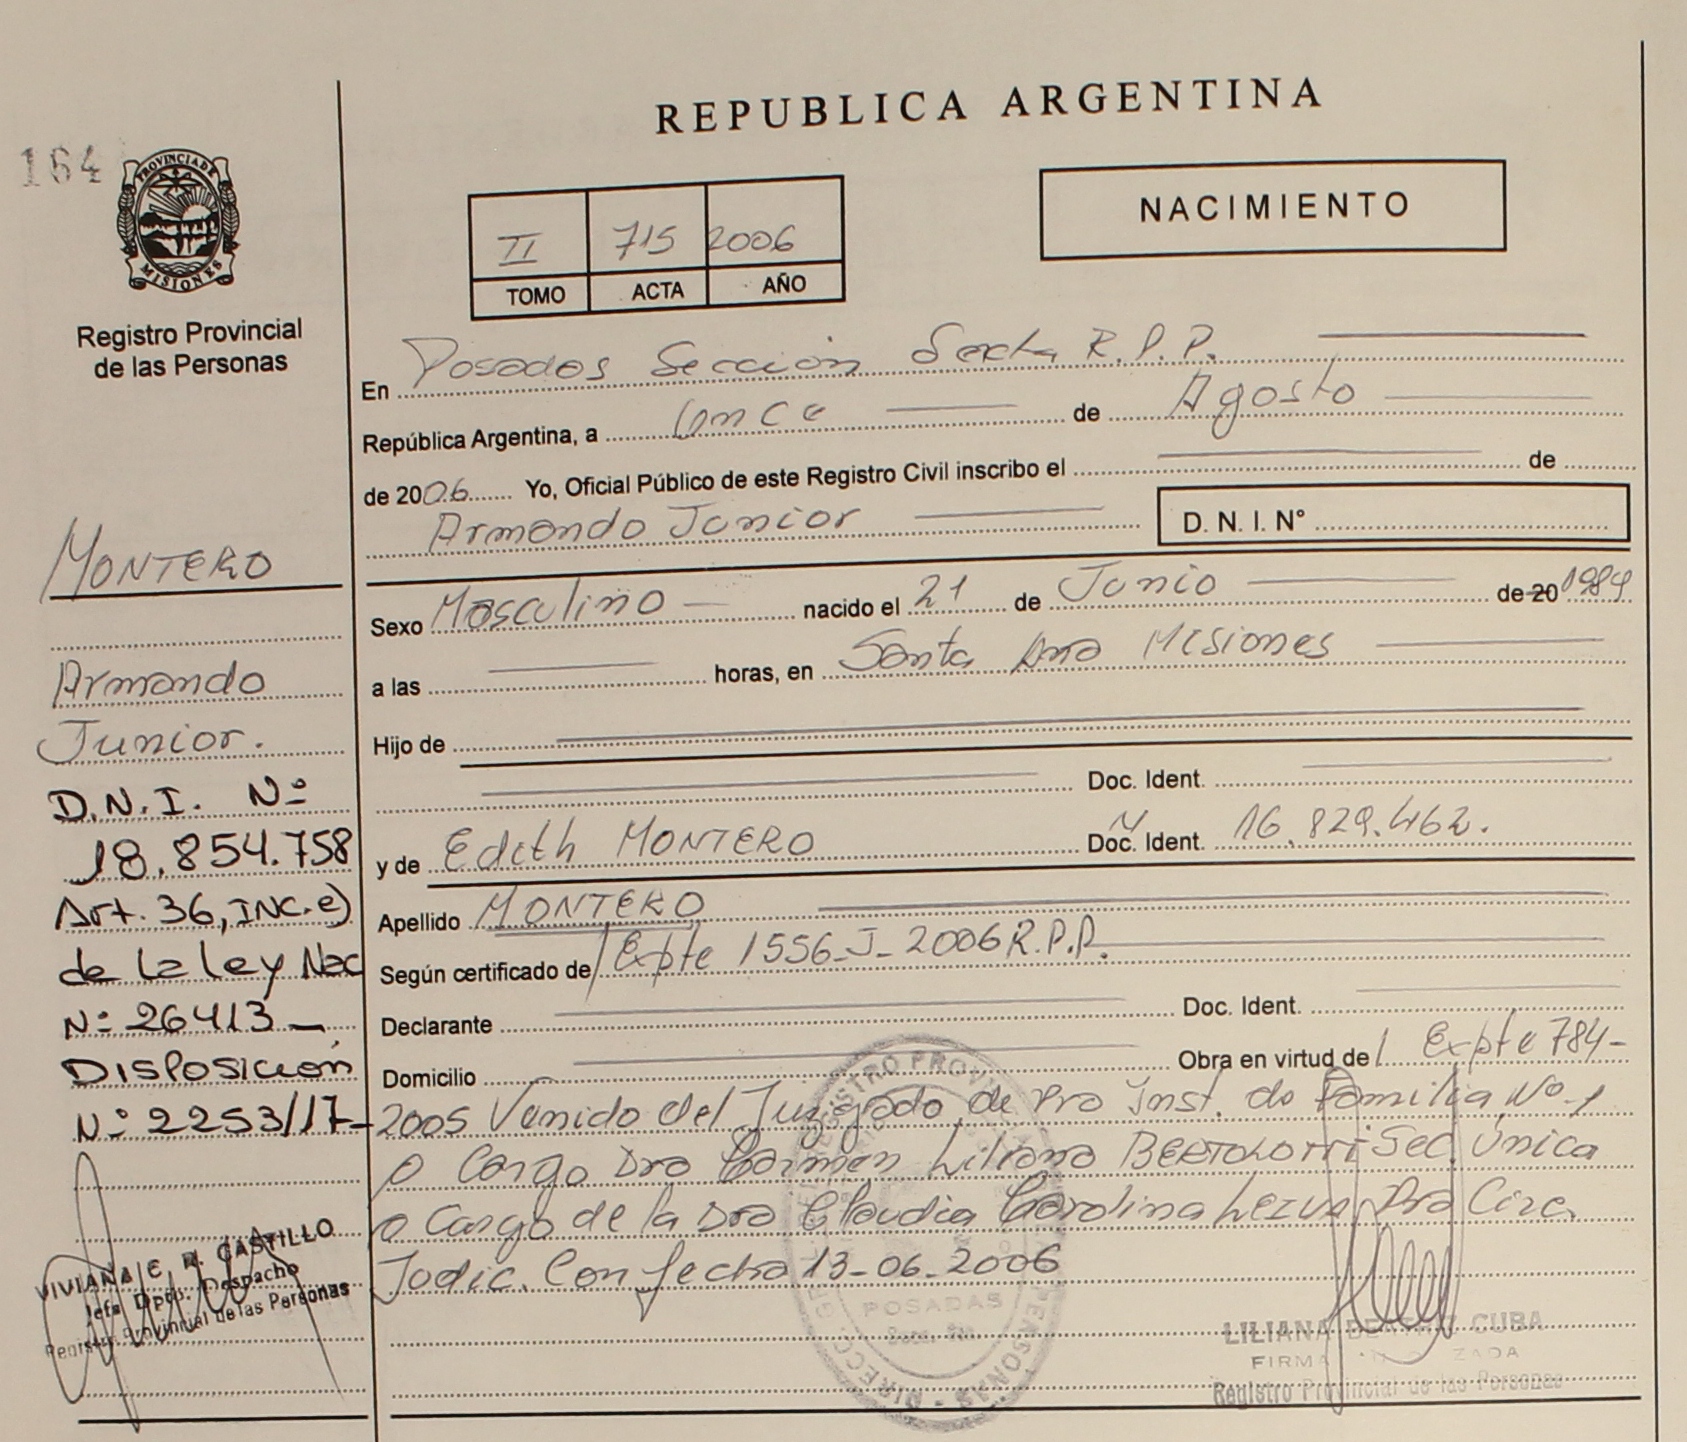 REPUBLICA ARGENTINA
164
PROVINCIA DE
MISIONES
Registro Provincial
de las Personas
NACIMIENTO
II 715 2006
TOMO ACTA AÑO
En Posadas Sección Sexta R.P.P.
República Argentina, a once de Agosto
de 2006 Yo, Oficial Público de este Registro Civil inscribo el de
Armando Junior D. N. I. N°
Sexo Masculino nacido el 21 de Junio de 20 1984
a las horas, en Santa Ana Misiones
Hijo de
Doc. Ident.
y de Edith MONTERO Doc. Ident. N 16.829.462.
Apellido MONTERO
Según certificado de Expte 1556-J-2006 R.P.P.
Declarante Doc. Ident.
Domicilio Obra en virtud de Expte 784-
2005 Venido del Juzgado de Pra Inst. de Familia Nº 1
a Cargo Dra Carmen Liliana BERTOLOTTI Sec. Única
a Cargo de la Dra Claudia Carolina Lezua Pra Circ.
Judic. Con fecha 13-06-2006
MONTERO
Armando
Junior.
D.N.I. Nº
18.854.758
Art. 36, INC.e)
de la ley Nac
Nº 26413
DISPOSICIÓN
Nº 2253/17-
VIVIANA E. R. CASTILLO
Jefa Dpto. Despacho
Registro Provincial de las Personas
POSADAS
LILIANA BEATRIZ CUBA
FIRMA AUTORIZADA
Registro Provincial de las Personas